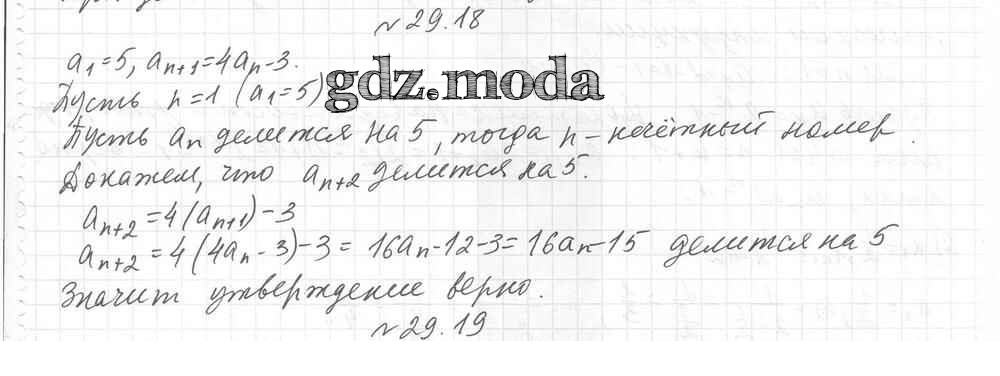 №29.18
a₁=5, aₙ₊₁=4aₙ-3.
Пусть n=1 (a₁=5)
gdz.moda
Пусть aₙ делится на 5, тогда n - нечётный номер.
Докажем, что aₙ₊₂ делится на 5.
aₙ₊₂=4(aₙ₊₁)-3
aₙ₊₂=4(4aₙ-3)-3=16aₙ-12-3=16aₙ-15 делится на 5
Значит утверждение верно.
№29.19